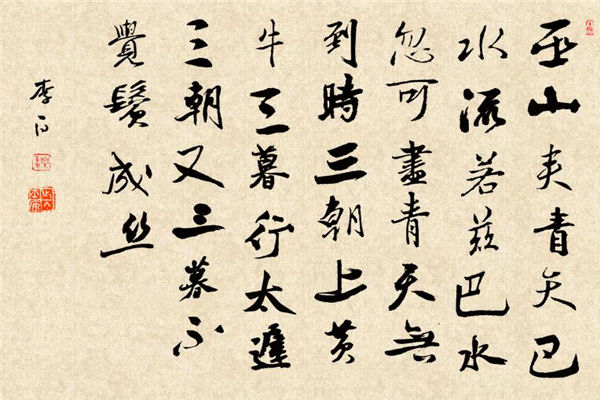 巫山夹青天巴
水流若兹巴水
忽可盡青天無
到時三朝上黄
牛三暮行太遲
三朝又三暮不
覺鬢成丝
李白